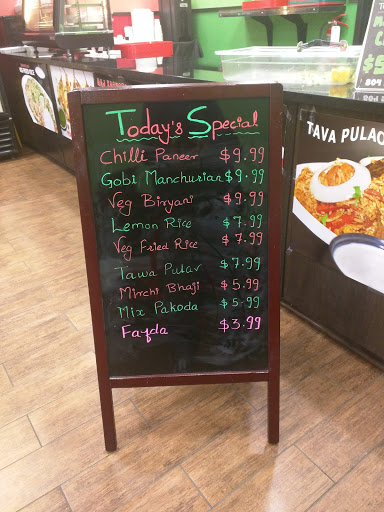 Today's Special
Chilli Paneer $9.99
Gobi Manchurian $9.99
Veg Biryani $9.99
Lemon Rice $7.99
Veg Fried Rice $7.99
Tawa Pulav $7.99
Mirchi Bhaji $5.99
Mix Pakoda $5.99
Fayda $3.99
TAVA PULAO